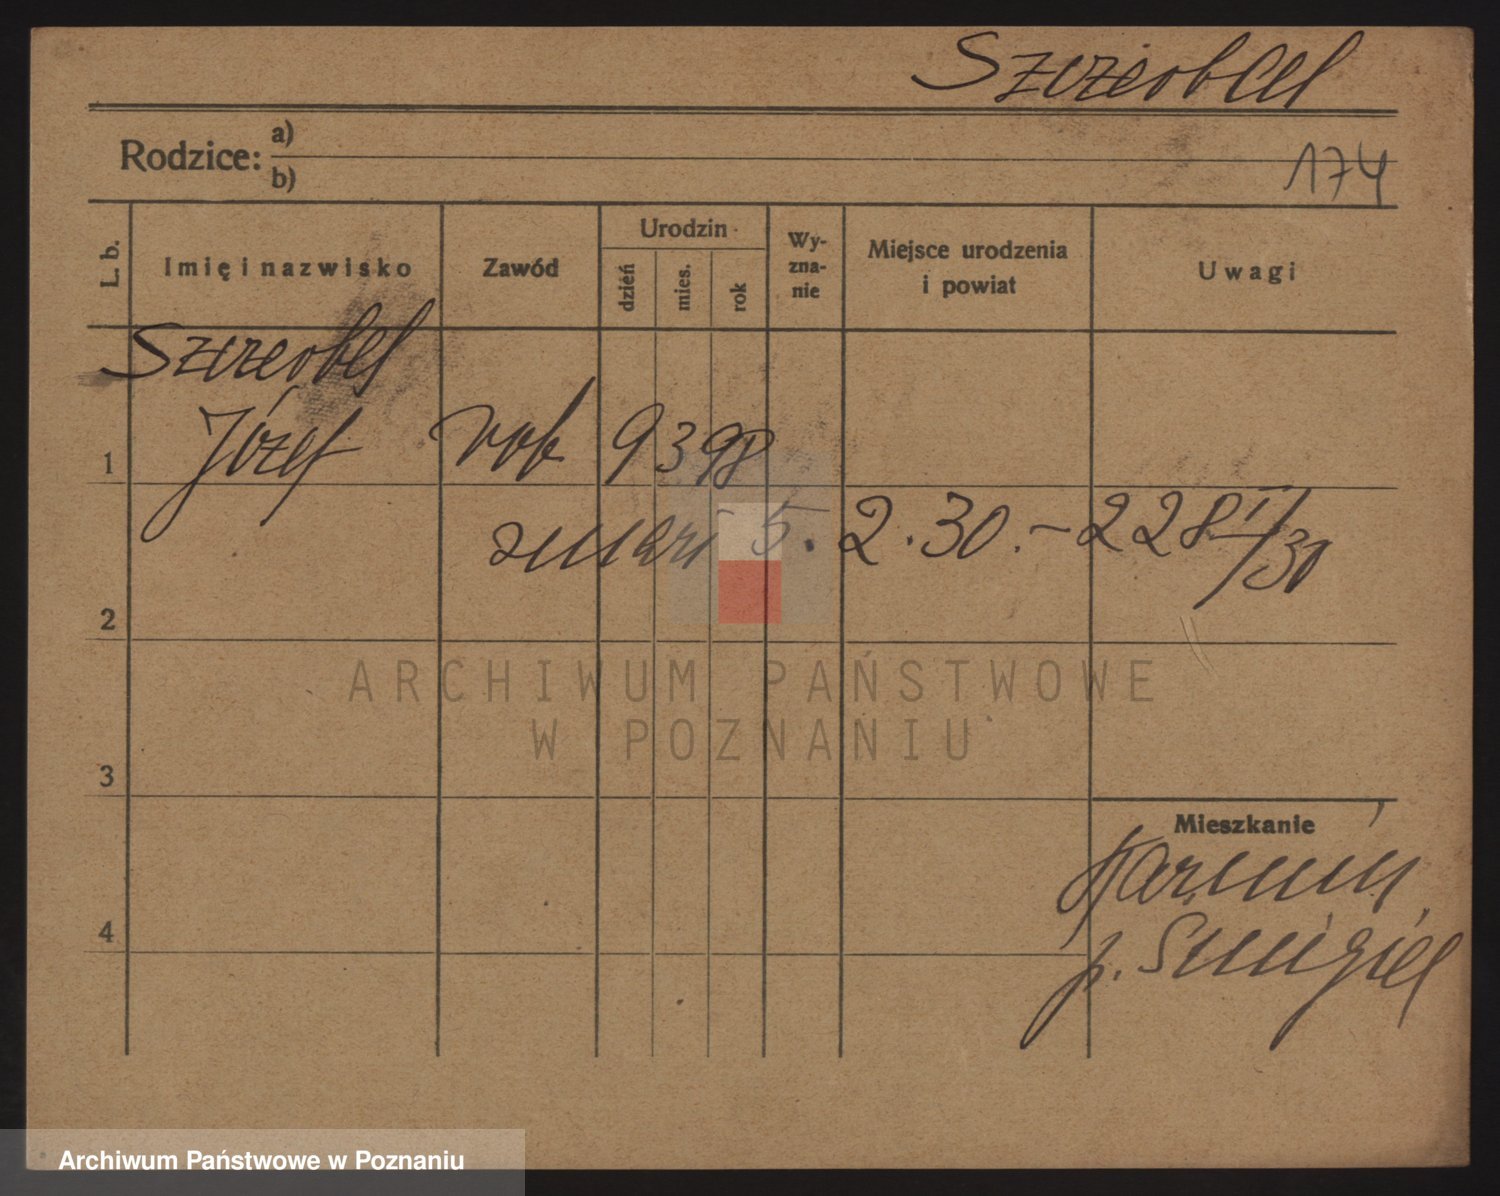 Szczeobel
Rodzice: a)
b)
174
L. b.
Imię i nazwisko
Zawód
Urodzin
dzień
mies.
rok
Wy-
zna-
nie
Miejsce urodzenia
i powiat
Uwagi
Szczeobel
Józef rob 9 3 98
1
zmarł 5. 2. 30. – 228 I/30
2
ARCHIWUM PAŃSTWOWE
W POZNANIU
3
Mieszkanie
Karmin
4
p. Śmigiel
Archiwum Państwowe w Poznaniu